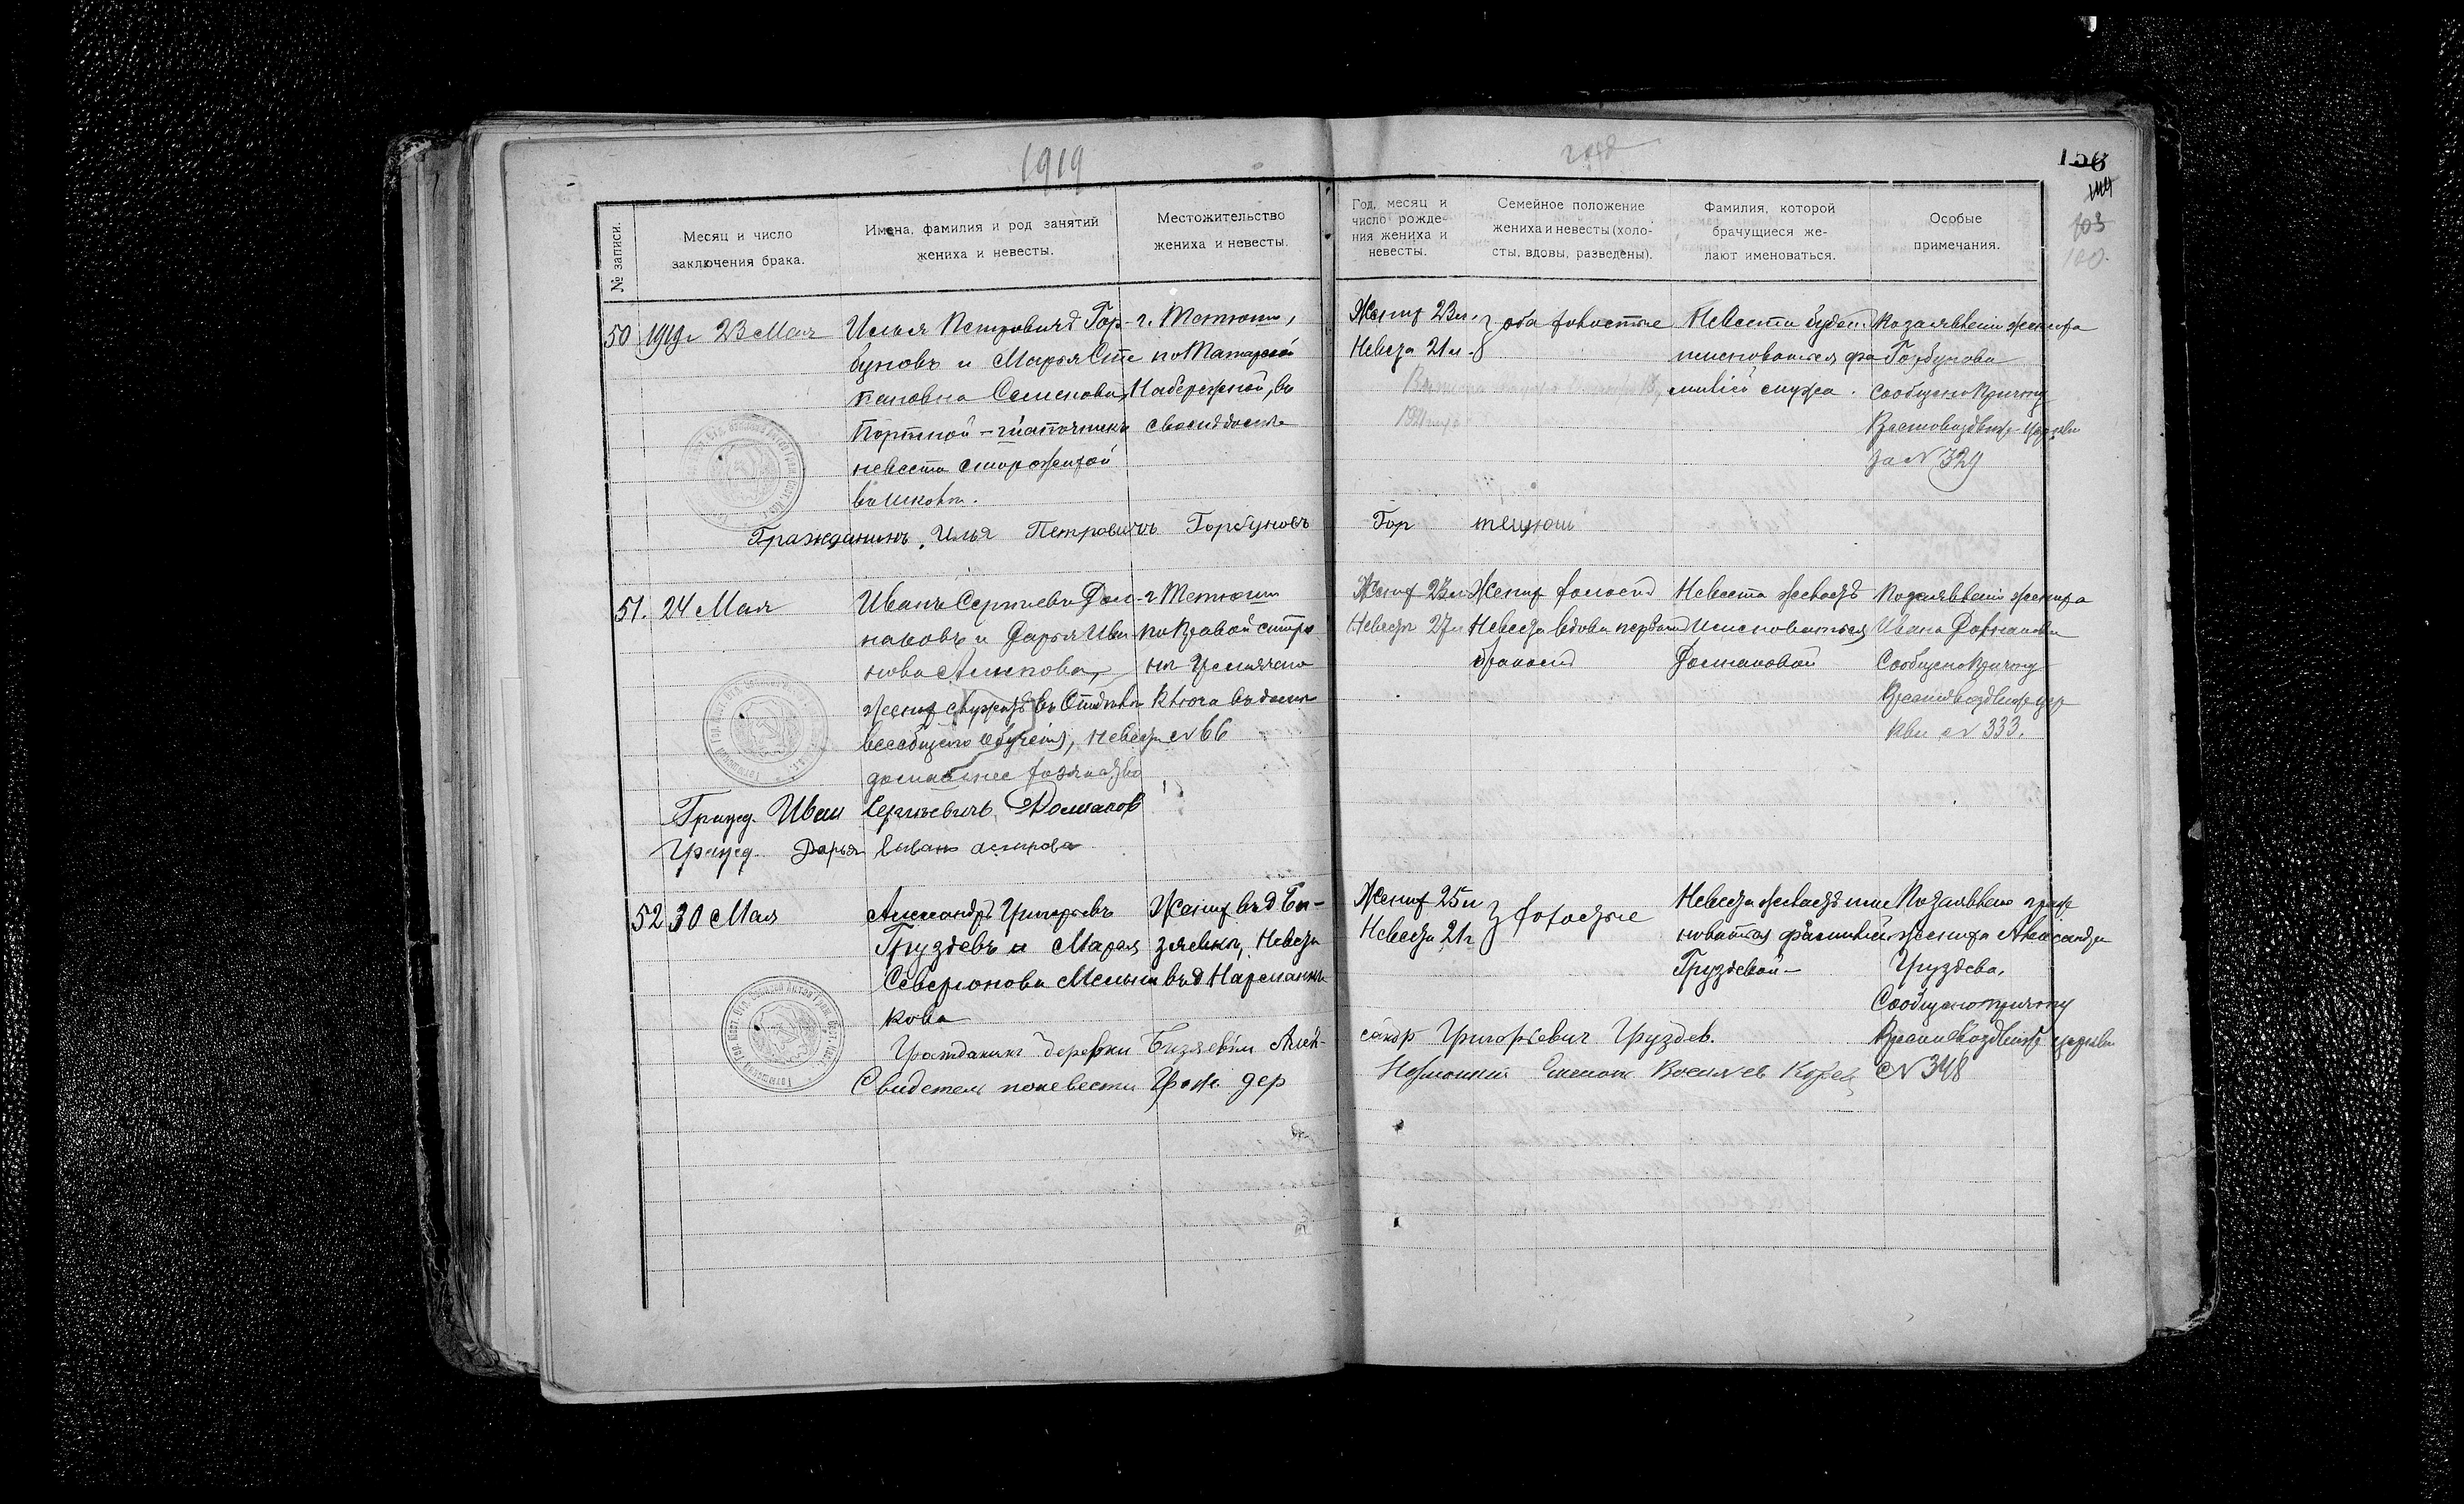 1919
год
156
103
100.
№ записи.
Месяц и число
заключения брака.
Имена, фамилия и род занятий
жениха и невесты.
Местожительство
жениха и невесты.
Год, месяц и
число рожде-
ния жениха и
невесты.
Семейное положение
жениха и невесты (холо-
сты, вдовы, разведены).
Фамилия, которой
брачущиеся же-
лают именоваться.
Особые
примечания.
50
1919г 23 Мая
Илья Петровичъ Гор-
буновъ и Марья Сте
пановна Семенова,
Портной - шапочникъ
невеста сторожихой
в школѣ.
г. Тетюши,
по Татарской
Набережной, въ
своемъ домѣ
Жених 23 л.
Невеста 21 л.
оба холостые
Невеста будет
именоваться фа
милией мужа.
По заявлению жениха
Горбунова
Сообщено Причту
Крестовоздвиж. церкви
За № 329
Гражданинъ, Илья Петровичъ Горбуновъ
Гор тетюши
51.
24 Мая
Иванъ Сергиевъ Дол-
маковъ и Дарья Ива
нова Асипова,
жених служитъ въ Отделѣ
всеобщего обучения, невеста
домашнее хозяйство
г Тетюши
по Правой сторо
нѣ
Ключа въ домѣ
№ 66
Жених 23 л
Невеста 27 л
Жених холост
Невеста вдова первым
браком
Невеста желаетъ
Именоваться
Долмаковой
По заявлению жениха
Ивана Долмакова
Сообщено Причту
Крестовоздвиж цер
кви № 333.
Гражд. Иван Сергѣевичъ Долмаков
Гражд. Дарья Иван асипова
52
30 Мая
Александръ Григорьевъ
Груздевъ и Марья
Северионова Мельни
кова
Жених въ д Би-
зяевкѣ, Невеста
въ д Нармонкѣ
Жених 25 л
Невеста 21 г
холостые
Невеста желаетъ име
новаться фамилией
Груздевой -
По заявлению граж
жениха Александра
Груздева.
Сообщено причту
Крестовоздвиж церкви
№ 348
Гражданин деревни Бизяевки Алек-
сандр Григорьевич Груздев.
Свидетель по невести Граж дер